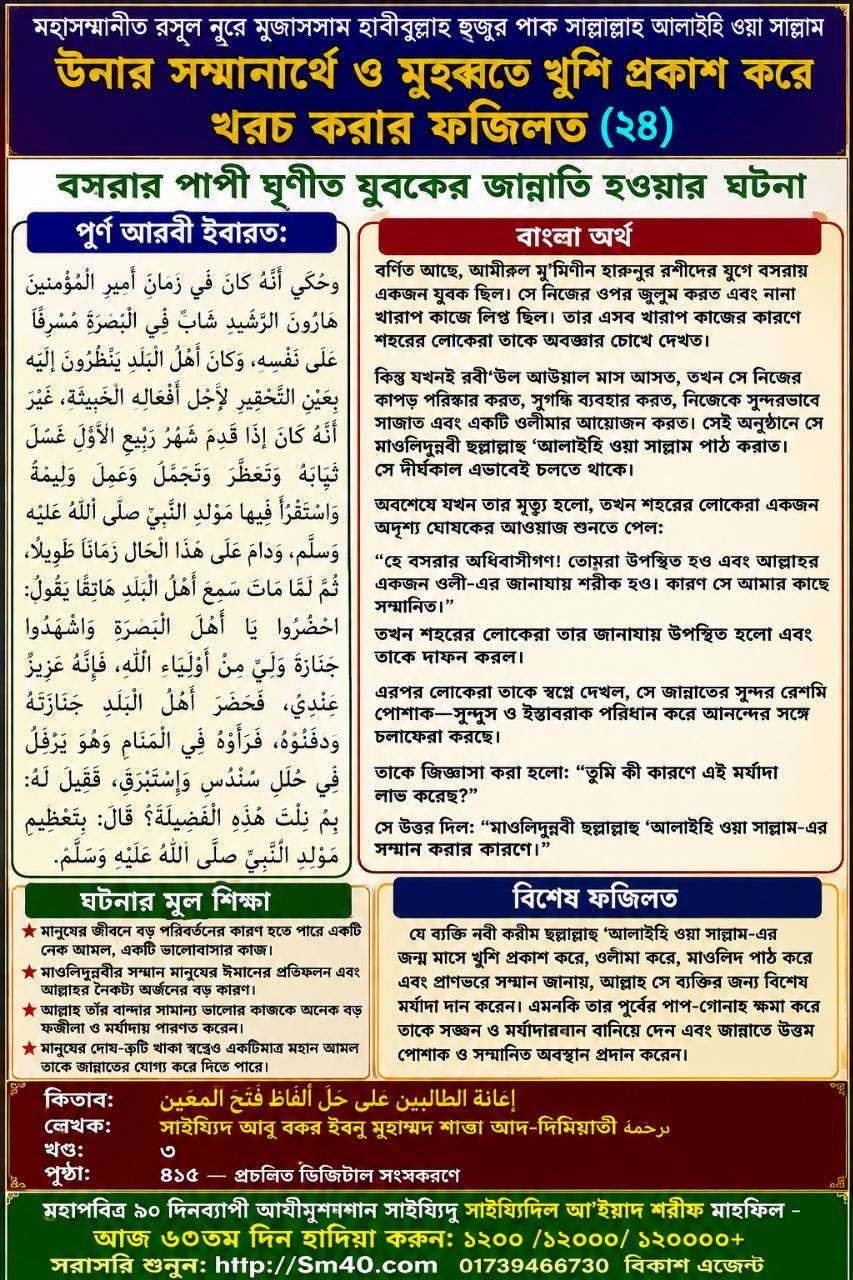 মহাসম্মানীত রসূল নুরে মুজাসসাম হাবীবুল্লাহ হুজুর পাক সাল্লাল্লাহ আলাইহি ওয়া সাল্লাম
উনার সম্মানার্থে ও মুহব্বতে খুশি প্রকাশ করে
খরচ করার ফজিলত (২৪)
বসরার পাপী ঘৃণীত যুবকের জান্নাতি হওয়ার ঘটনা
পুর্ণ আরবী ইবারত:
وَحُكَي أَنَّهُ كَانَ فَي زَمَانَ أَمِيرِ الْمُؤْمنينَ
هَارُونَ الرَّشَيدِ شَابٌّ فِي الْبَصْرَةِ مُسْرِفًا
عَلَى نَفْسِهِ، وَكَانَ أَهْلُ الْبَلَدِ يَنْظُرُونَ إِلَيه
بِعَيْنِ التَّحْقِيرِ لِأَجْلِ أَفْعَالِهِ الْخَبِيثَة، غَيْرَ
أَنَّهُ كَانَ إِذَا قَدِمَ شَهْرُ رَبِيعِ الأَوَّلِ غَسَلَ
ثِيَابَهُ وَتَعَظَّرَ وَتَجَمَّلُ وَعَمِلَ وَلِيمَةُ
وَاسْتَقْرَأَ فِيها مَوْلدِ النَّبِيِّ صلَّى اللهُ عَلَيْه
وَسَلَّم، وَدَامَ عَلَى هَذَا الْحَال زَمَانَا طَوِيلًا،
ثُمَّ لَمَّا مَاتَ سَمِعَ أَهْلُ الْبَلَدِ هَاتِقًا يَقُولُ:
احْضُرُوا يَا أَهْلَ الْبَصْرَةِ وَاشْهَدُوا
جَنَازَةَ وَلِيٍّ مِنْ أَوْلِيَاءِ اللهِ، فَإِنَّهُ عَزِيزٌ
عِنْدِيْ، فَحَضَرَ أَهْلُ الْبَلَدِ جَنَازَتَهُ
وَدفَنُوْهُ، فَرَأَوْهُ فِي الْمَنَامِ وَهُوَ يَرْفِلُ
فِي حُلَلِ سُنْدُسِ وَإِسْتَبْرَقٍ، فَقِيلَ لَهُ:
بِمْ نِلْتَ هَذِهِ الْفَضِيلَةَ؟ قَالَ: بِتَعْظِيمِ
مَوْلِدِ النَّبِيِّ صلَّى اللهُ عَلَيْهِ وَسَلَّمْ.
বাংলা অর্থ
বর্ণিত আছে, আমীরুল মু'মিণীন হারুনুর রশীদের যুগে বসরায়
একজন যুবক ছিল। সে নিজের ওপর জুলুম করত এবং নানা
খারাপ কাজে লিপ্ত ছিল। তার এসব খারাপ কাজের কারণে
শহরের লোকেরা তাকে অবজ্ঞার চোখে দেখত।
কিন্তু যখনই রবী'উল আউয়াল মাস আসত, তখন সে নিজের
কাপড় পরিস্কার করত, সুগন্ধি ব্যবহার করত, নিজেকে সুন্দরভাবে
সাজাত এবং একটি ওলীমার আয়োজন করত। সেই অনুষ্ঠানে সে
মাওলিদুন্নবী ছল্লাল্লাহু 'আলাইহি ওয়া সাল্লাম পাঠ করাত।
সে দীর্ঘকাল এভাবেই চলতে থাকে।
অবশেষে যখন তার মৃত্যু হলো, তখন শহরের লোকেরা একজন
অদৃশ্য ঘোষকের আওয়াজ শুনতে পেল:
“হে বসরার অধিবাসীগণ! তোমরা উপস্থিত হও এবং আল্লাহর
একজন ওলী-এর জানাযায় শরীক হও। কারণ সে আমার কাছে
সম্মানিত।”
তখন শহরের লোকেরা তার জানাযায় উপস্থিত হলো এবং
তাকে দাফন করল।
এরপর লোকেরা তাকে স্বপ্নে দেখল, সে জান্নাতের সুন্দর রেশমি
পোশাক—সুন্দুস ও ইস্তাবরাক পরিধান করে আনন্দের সঙ্গে
চলাফেরা করছে।
তাকে জিজ্ঞাসা করা হলো: “তুমি কী কারণে এই মর্যাদা
লাভ করেছ?”
সে উত্তর দিল: “মাওলিদুন্নবী ছল্লাল্লাহু 'আলাইহি ওয়া সাল্লাম-এর
সম্মান করার কারণে।”
ঘটনার মুল শিক্ষা
★ মানুষের জীবনে বড় পরিবর্তনের কারণ হতে পারে একটি
নেক আমল, একটি ভালোবাসার কাজ।
★ মাওলিদুন্নবীর সম্মান মানুষের ঈমানের প্রতিফলন এবং
আল্লাহর নৈকট্য অর্জনের বড় কারণ।
★ আল্লাহ তাঁর বান্দার সামান্য ভালোর কাজকে অনেক বড়
ফজীলা ও মর্যাদায় পারণত করেন।
★ মানুষের দোয-ত্রুটি থাকা স্বত্বেও একটিমাত্র মহান আমল
তাকে জান্নাতের যোগ্য করে দিতে পারে।
বিশেষ ফজিলত
যে ব্যক্তি নবী করীম ছল্লাল্লাহু 'আলাইহি ওয়া সাল্লাম-এর
জন্ম মাসে খুশি প্রকাশ করে, ওলীমা করে, মাওলিদ পাঠ করে
এবং প্রাণভরে সম্মান জানায়, আল্লাহ সে ব্যক্তির জন্য বিশেষ
মর্যাদা দান করেন। এমনকি তার পূর্বের পাপ-গোনাহ ক্ষমা করে
তাকে সজ্জন ও বানিয়ে দেন এবং জান্নাতে উত্তম
পোশাক ও সম্মানিত অবস্থান প্রদান করেন।
কিতাব: إعَانة الطالبين عَلى حَلَ ألفَاظ فَتَحَ المعَين
লেখক: সাইয্যিদ আবু বকর ইবনু মুহাম্মদ শাত্তা আদ-দিমিয়াতী
খণ্ড: ৩
পৃষ্ঠা: ৪১৫ — প্রচলিত ডিজিটাল সংসকরণে
মহাপবিত্র ৯০ দিনব্যাপী সাইয্যিদু সাইয্যিদিল আ'ইয়াদ শরীফ মাহফিল -
আজ ৬৩তম দিন হাদিয়া করুন: ১২০০ /১২০০০/ ১২০০০০+
সরাসরি শুনুন: http://Sm40.com 01739466730 বিকাশ এজেন্ট